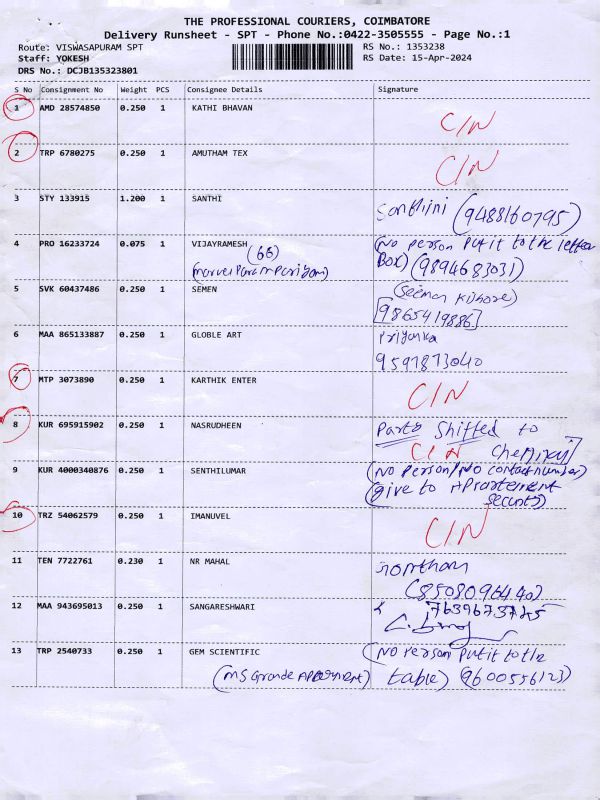 THE PROFESSIONAL COURIERS, COIMBATORE
Delivery Runsheet - SPT - Phone No.:0422-3505555 - Page No.:1
Route: VISWASAPURAM SPT
RS No.: 1353238
Staff: YOKESH
RS Date: 15-Apr-2024
DRS No.: DCJB135323801
S No Consignment No Weight PCS Consignee Details Signature
1 AMD 28574850 0.250 1 KATHI BHAVAN
C/N
2 TRP 6780275 0.250 1 AMUTHAM TEX
C/N
3 STY 133915 1.200 1 SANTHI
(9488160795)
4 PRO 16233724 0.075 1 VIJAYRAMESH (No person put it to the letter
(66) Box) (9894683031)
5 SVK 60437486 0.250 1 SEMEN
[9865419886]
6 MAA 865133887 0.250 1 GLOBLE ART Priyanka
9597873040
7 MTP 3073890 0.250 1 KARTHIK ENTER
C/N
8 KUR 695915902 0.250 1 NASRUDHEEN Party Shifted to
C/N
9 KUR 4000340876 0.250 1 SENTHILUMAR (No person/No contact number)
give to
10 TRZ 54062579 0.250 1 IMANUVEL
C/N
11 TEN 7722761 0.230 1 NR MAHAL
(8508096440)
12 MAA 943695013 0.250 1 SANGARESHWARI
13 TRP 2540733 0.250 1 GEM SCIENTIFIC (No person put it to the
(MS Grande Appartment) table) (9600556123)